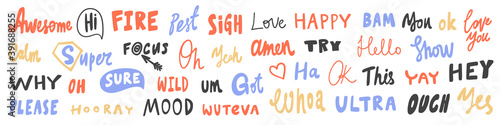 Awesome Hi FIRE Pest SIGH Love HAPPY BAM You ok Love you
alm Super FOCUS Oh Yeah amen TRY Hello Show
WHY OH SURE WILD um Got Ha OK This YAY HEY
LEASE HOORAY MOOD WUTEVA Whoa ULTRA OUCH Yes
391688255